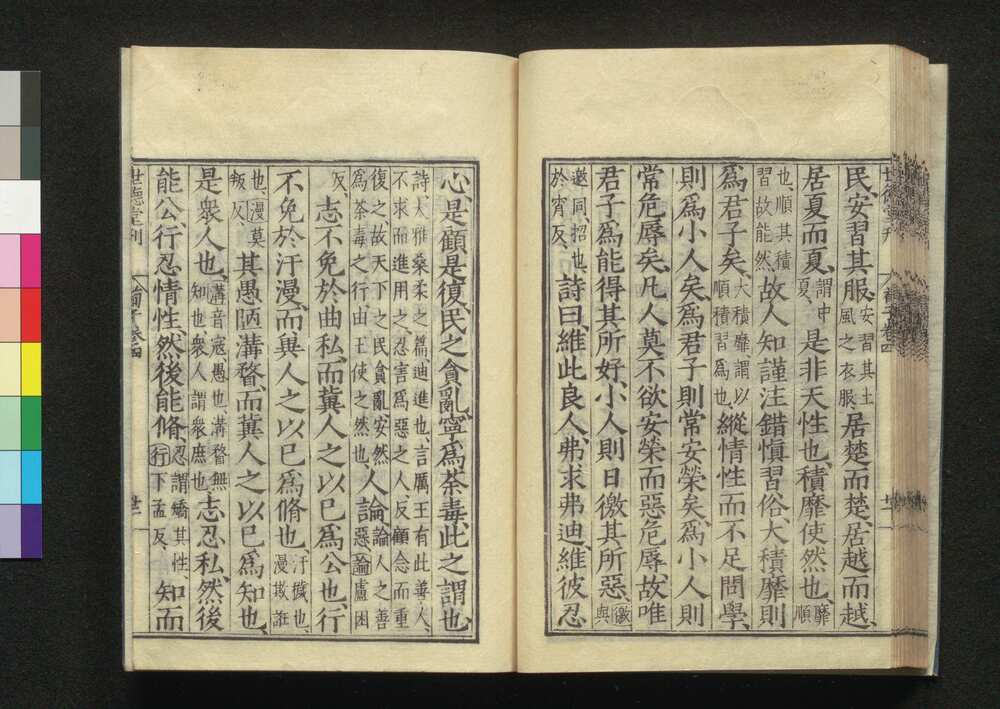 民、安習其服、安習其土風之衣服、居楚而楚、居越而越、
居夏而夏、謂中夏、是非天性也、積靡使然也、靡順
也、順其積習故能然、故人知謹注錯愼習俗、大積靡則
爲君子矣、大積靡、謂以順積習爲也、縱情性而不足問學、
則爲小人矣、爲君子則常安榮矣、爲小人則
常危辱矣、凡人莫不欲安榮而惡危辱、故唯
君子爲能得其所好、小人則日徼其所惡、徼與
邀同、招也、於宵反、詩曰、維此良人、弗求弗迪、維彼忍
世德堂刊
荀子卷四
廿
心、是顧是復、民之貪亂、寧爲荼毒、此之謂也、
詩、大雅桑柔之篇、迪進也、言厲王有此善人、不求而進用之、忍害爲惡之人、反顧念而重
復之、故天下之民貪亂、安然爲荼毒之行、由王使之然也、人論、論人之善惡、論盧困
反、志不免於曲私、而冀人之以已爲公也、行
不免於汙漫、而冀人之以已爲脩也、汙穢也、漫欺誑
也、漫莫叛反、其愚陋溝瞀、而冀人之以已爲知也、
是衆人也、溝音寇、愚也、溝瞀無知也、衆人謂衆庶也、志忍私、然後
能公、行忍情性、然後能脩、忍謂矯其性、行下孟反、知而
世德堂刊
荀子卷四
廿一